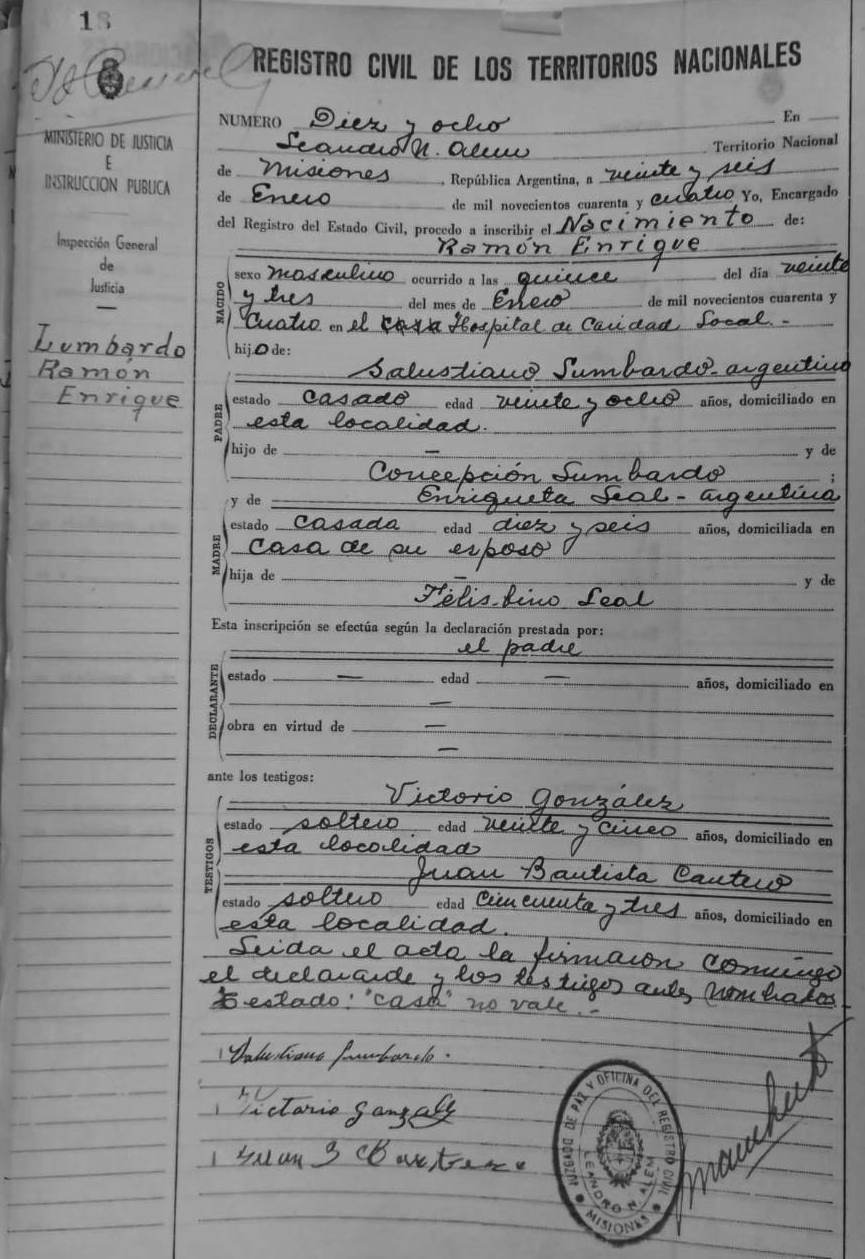 18
MINISTERIO DE JUSTICIA
E
INSTRUCCION PUBLICA
Inspección General
de
Justicia
Lumbardo
Ramón
Enrique
REGISTRO CIVIL DE LOS TERRITORIOS NACIONALES
NUMERO Diez y ocho En
Leandro N. Alem Territorio Nacional
de Misiones, República Argentina, a veinte y seis
de Enero de mil novecientos cuarenta y cuatro Yo, Encargado
del Registro del Estado Civil, procedo a inscribir el Nacimiento de:
Ramón Enrique
NACIDO
sexo masculino ocurrido a las quince del día veinte
y tres del mes de Enero de mil novecientos cuarenta y
cuatro en el casa Hospital de Caridad Local.-
hijo de:
Salustiano Lumbardo-argentino
PADRE
estado casado edad veinte y ocho años, domiciliado en
esta localidad.
hijo de — y de
Concepción Lumbardo ;
y de Enriqueta Leal-argentina
MADRE
estado casada edad diez y seis años, domiciliada en
casa de su esposo
hija de — y de
Felis-bino Leal
Esta inscripción se efectúa según la declaración prestada por:
el padre
DECLARANTE
estado — edad — años, domiciliado en
—
obra en virtud de —
—
ante los testigos:
Victorio González
TESTIGOS
estado soltero edad veinte y cinco años, domiciliado en
esta localidad
Juan Bautista Cantero
estado soltero edad cincuenta y tres años, domiciliado en
esta localidad.
Leida el acta la firmaron conmigo
el declarante y los testigos antes nombrados.-
Testado: "casa" no vale.-
Salustiano Lumbardo.
Victorio Gonzalez
Juan B Cantero
JUZGADO DE PAZ Y OFICINA DEL REGISTRO CIVIL
LEANDRO N. ALEM
MISIONES